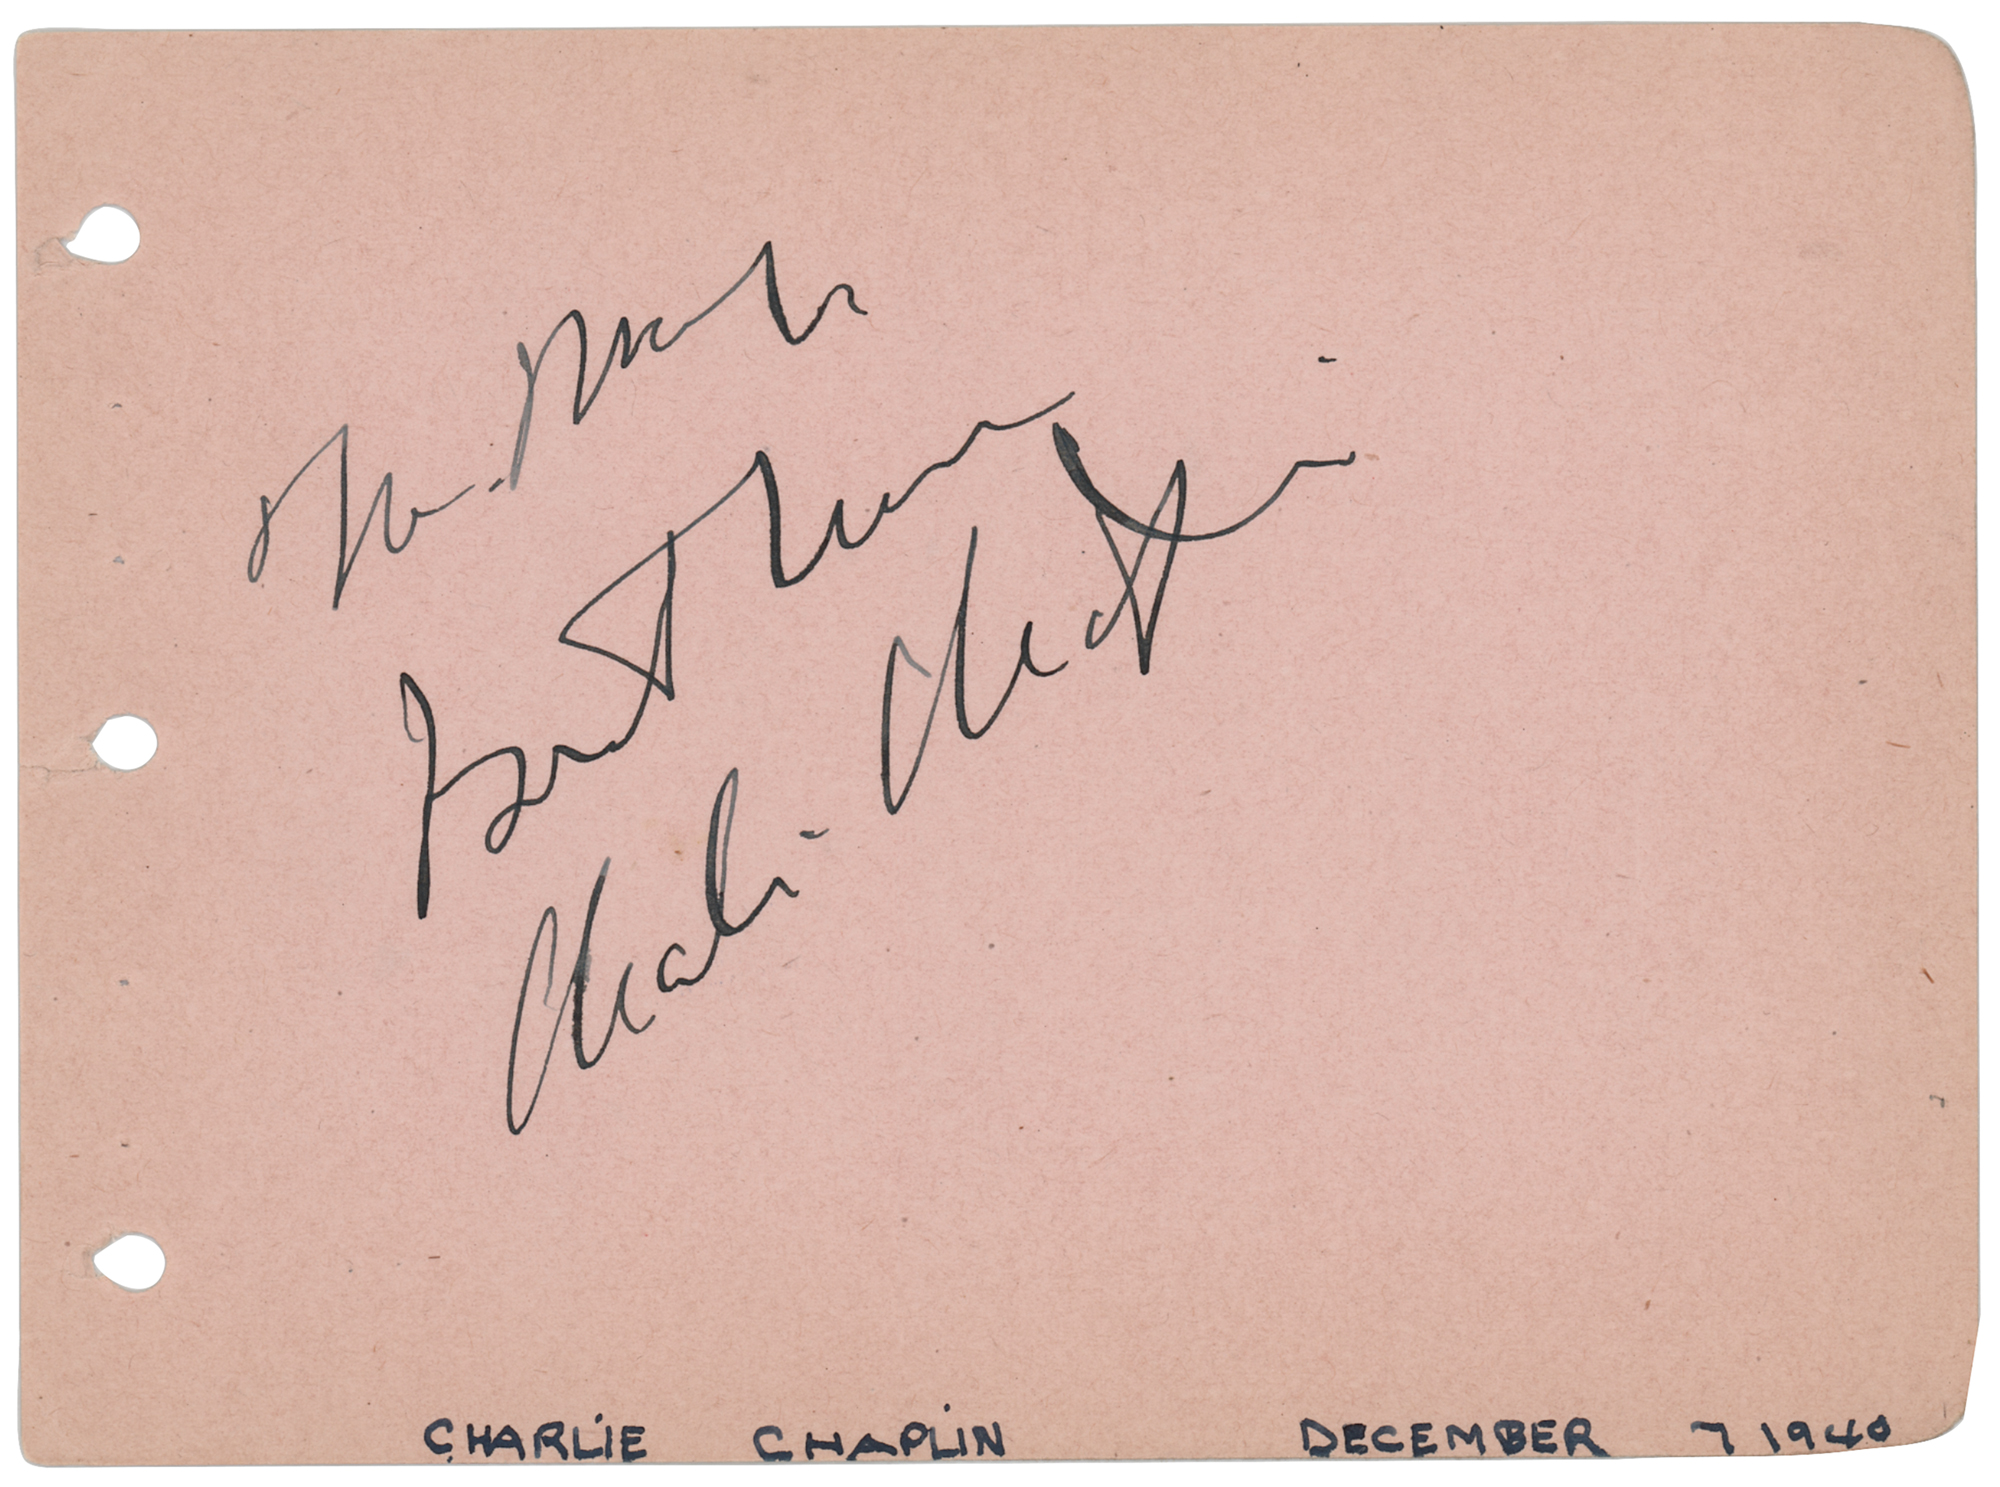 Best Wishes
Charlie Chaplin
CHARLIE CHAPLIN DECEMBER 7 1940